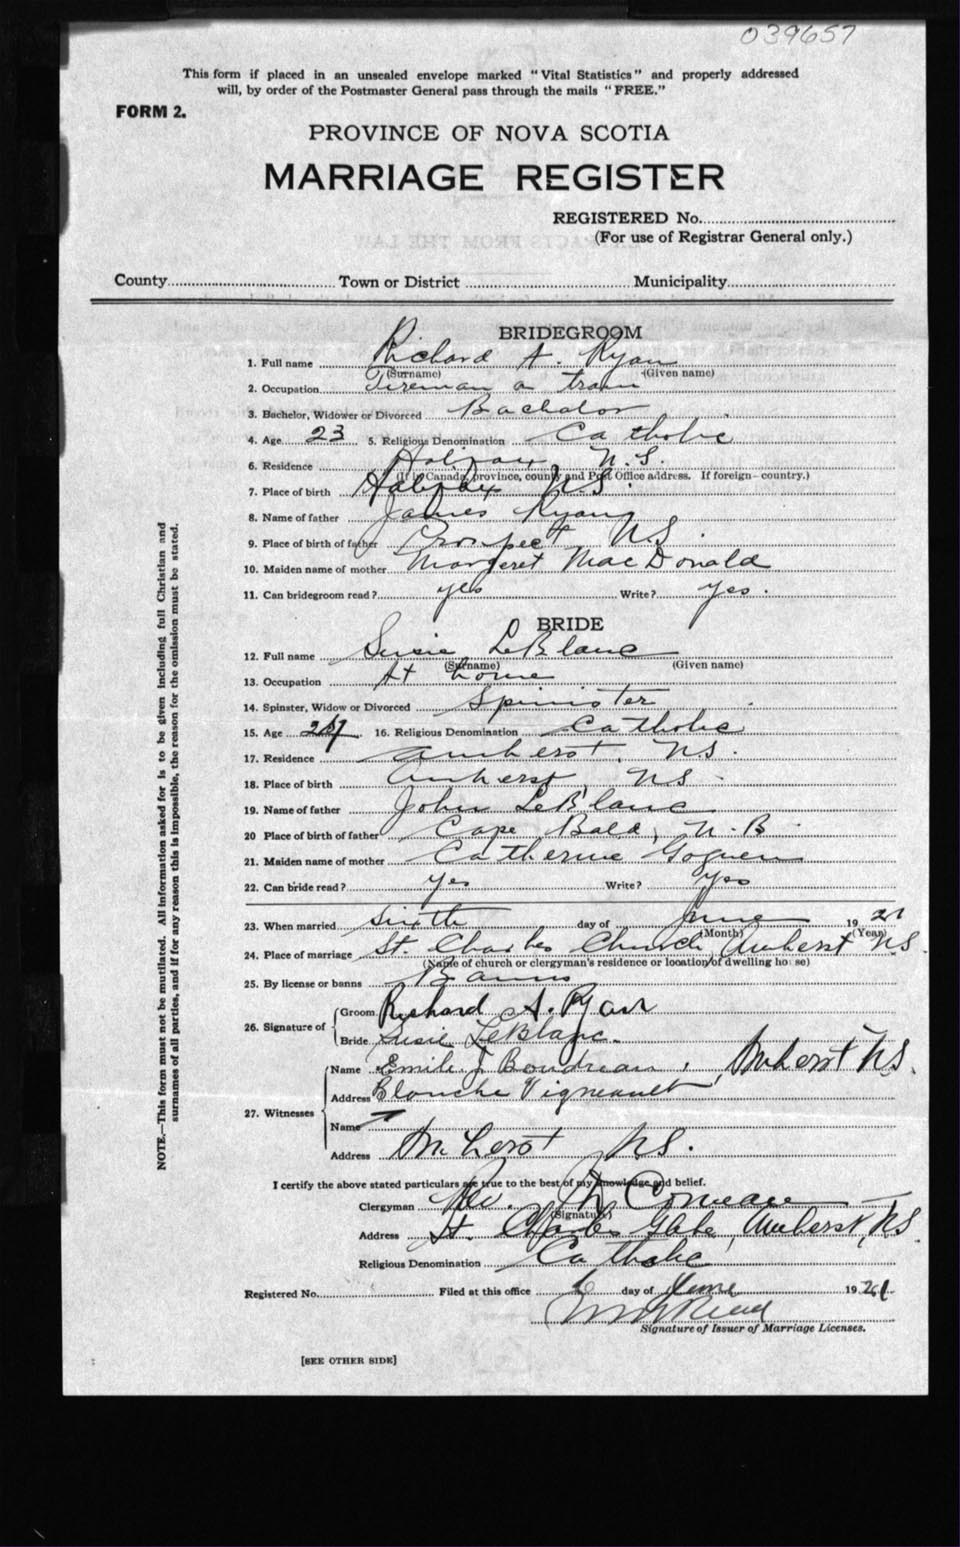 039657
This form if placed in an unsealed envelope marked "Vital Statistics" and properly addressed
will, by order of the Postmaster General pass through the mails "FREE."
FORM 2.
PROVINCE OF NOVA SCOTIA
MARRIAGE REGISTER
REGISTERED No.
(For use of Registrar General only.)
County Town or District Municipality
BRIDEGROOM
1. Full name Richard A. Ryan
(Surname) (Given name)
2. Occupation Fireman on train
3. Bachelor, Widower or Divorced Bachelor
4. Age 23 5. Religious Denomination Catholic
6. Residence Halifax N.S.
(If in Canada, province, county and Post Office address. If foreign—country.)
7. Place of birth Halifax N.S.
8. Name of father James Ryan
9. Place of birth of father Prospect N.S.
10. Maiden name of mother Margeret MacDonald
11. Can bridegroom read? yes Write? yes.
BRIDE
12. Full name Susie LeBlanc
(Surname) (Given name)
13. Occupation At home
14. Spinster, Widow or Divorced Spinister
15. Age 16. Religious Denomination Catholic
17. Residence Amherst, N.S.
18. Place of birth Amherst, N.S.
19. Name of father John LeBlanc
20 Place of birth of father Cape Bald, N.B.
21. Maiden name of mother Catherine Goguen
22. Can bride read? yes Write? yes
23. When married Sixth day of June 1921
(Month) (Year)
24. Place of marriage St. Charles Church, Amherst N.S.
(Name of church or clergyman's residence or location of dwelling house)
25. By license or banns Banns
26. Signature of Groom Richard A. Ryan
Bride Susie LeBlanc.
27. Witnesses Name Emile J. Boudreau, Amherst N.S.
Address Blanche Vigneault,
Name
Address Amherst N.S.
I certify the above stated particulars are true to the best of my knowledge and belief.
Clergyman Rev. Comeau
(Signature)
Address St. Charles Gate, Amherst, N.S.
Religious Denomination Catholic
Registered No. Filed at this office 6 day of June 1921
Signature of Issuer of Marriage Licenses.
[SEE OTHER SIDE]
NOTE.—This form must not be mutilated. All information asked for is to be given including full Christian and
surnames of all parties, and if for any reason this is impossible, the reason for the omission must be stated.